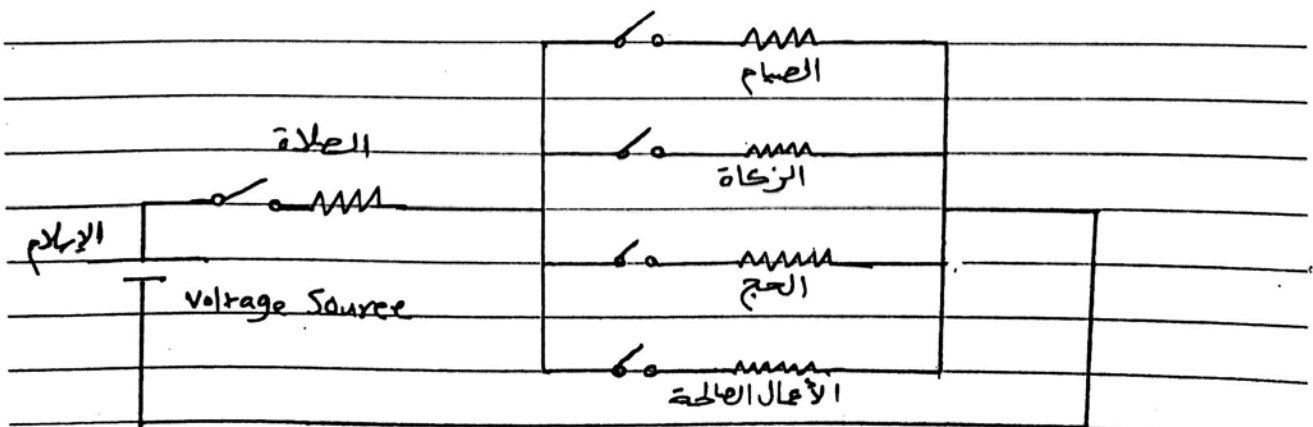 الصيام
الصلاة
الزكاة
الإسلام
الحج
Voltage Source
الأعمال الصالحة